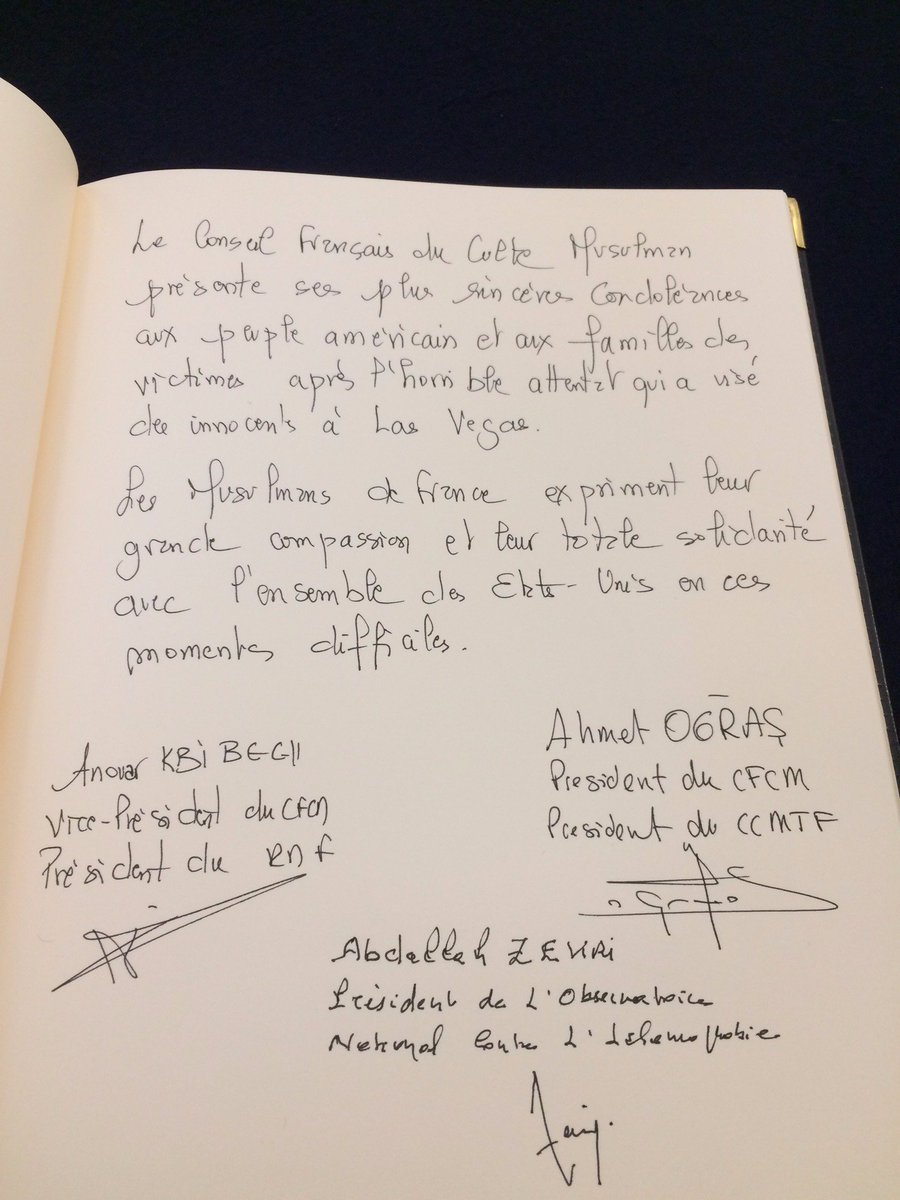 Le Conseil Français du Culte Musulman
présente ses plus sincères Condoléances
aux peuple américain et aux familles des
victimes après l'horrible attentat qui a visé
des innocents à Las Vegas.
Les Musulmans de France expriment leur
grande compassion et leur totale solidarité
avec l'ensemble des Etats-Unis en ces
moments difficiles.
Anouar KBIBECH
Vice-Président du CFCM
Président du RMF
Ahmet OĞRAŞ
President du CFCM
President du CCMTF
Abdallah ZEKRI
Président de L'Observatoire
National Contre L'Islamophobie